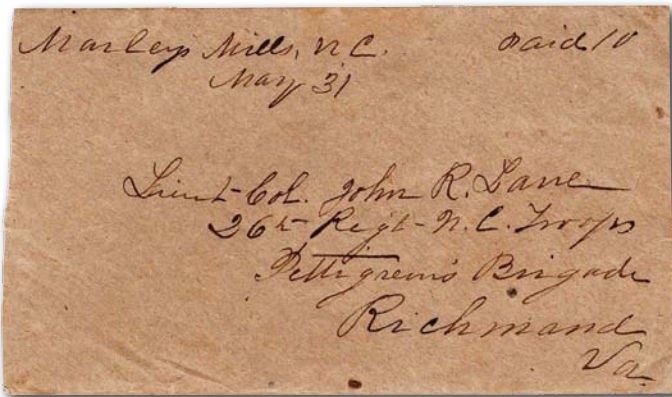 Marleys Mills, N.C. Paid 10
May 31
Lieut-Col. John R. Lane
26th Regt- N.C. Troops
Pettigrew's Brigade
Richmond
Va